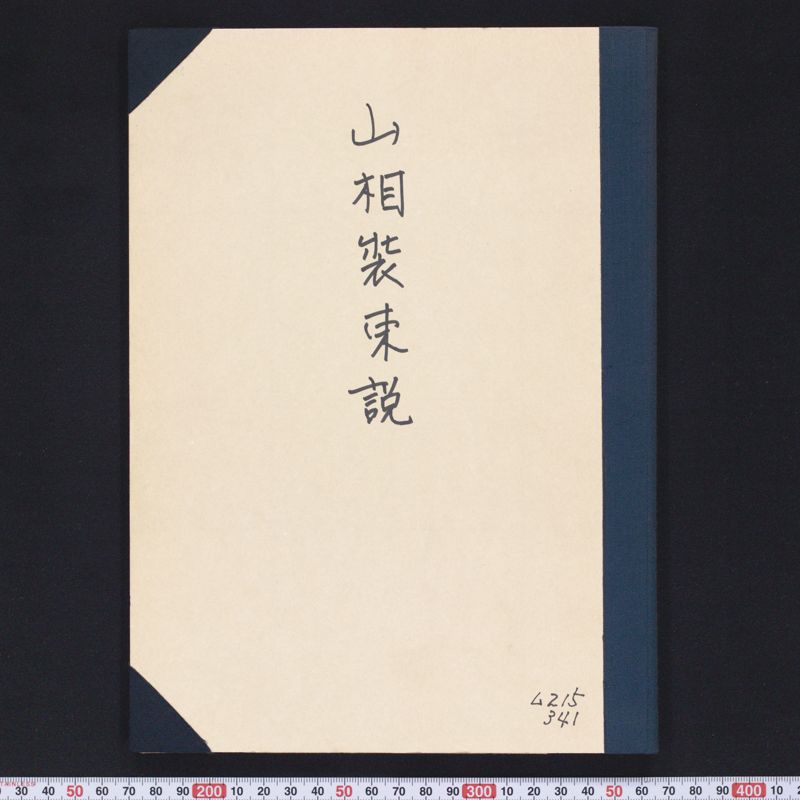 山相裝束説
ム215
341
STAINLESS
30 40 50 60 70 80 90 200 10 20 30 40 50 60 70 80 90 300 10 20 30 40 50 60 70 80 90 400 10 2